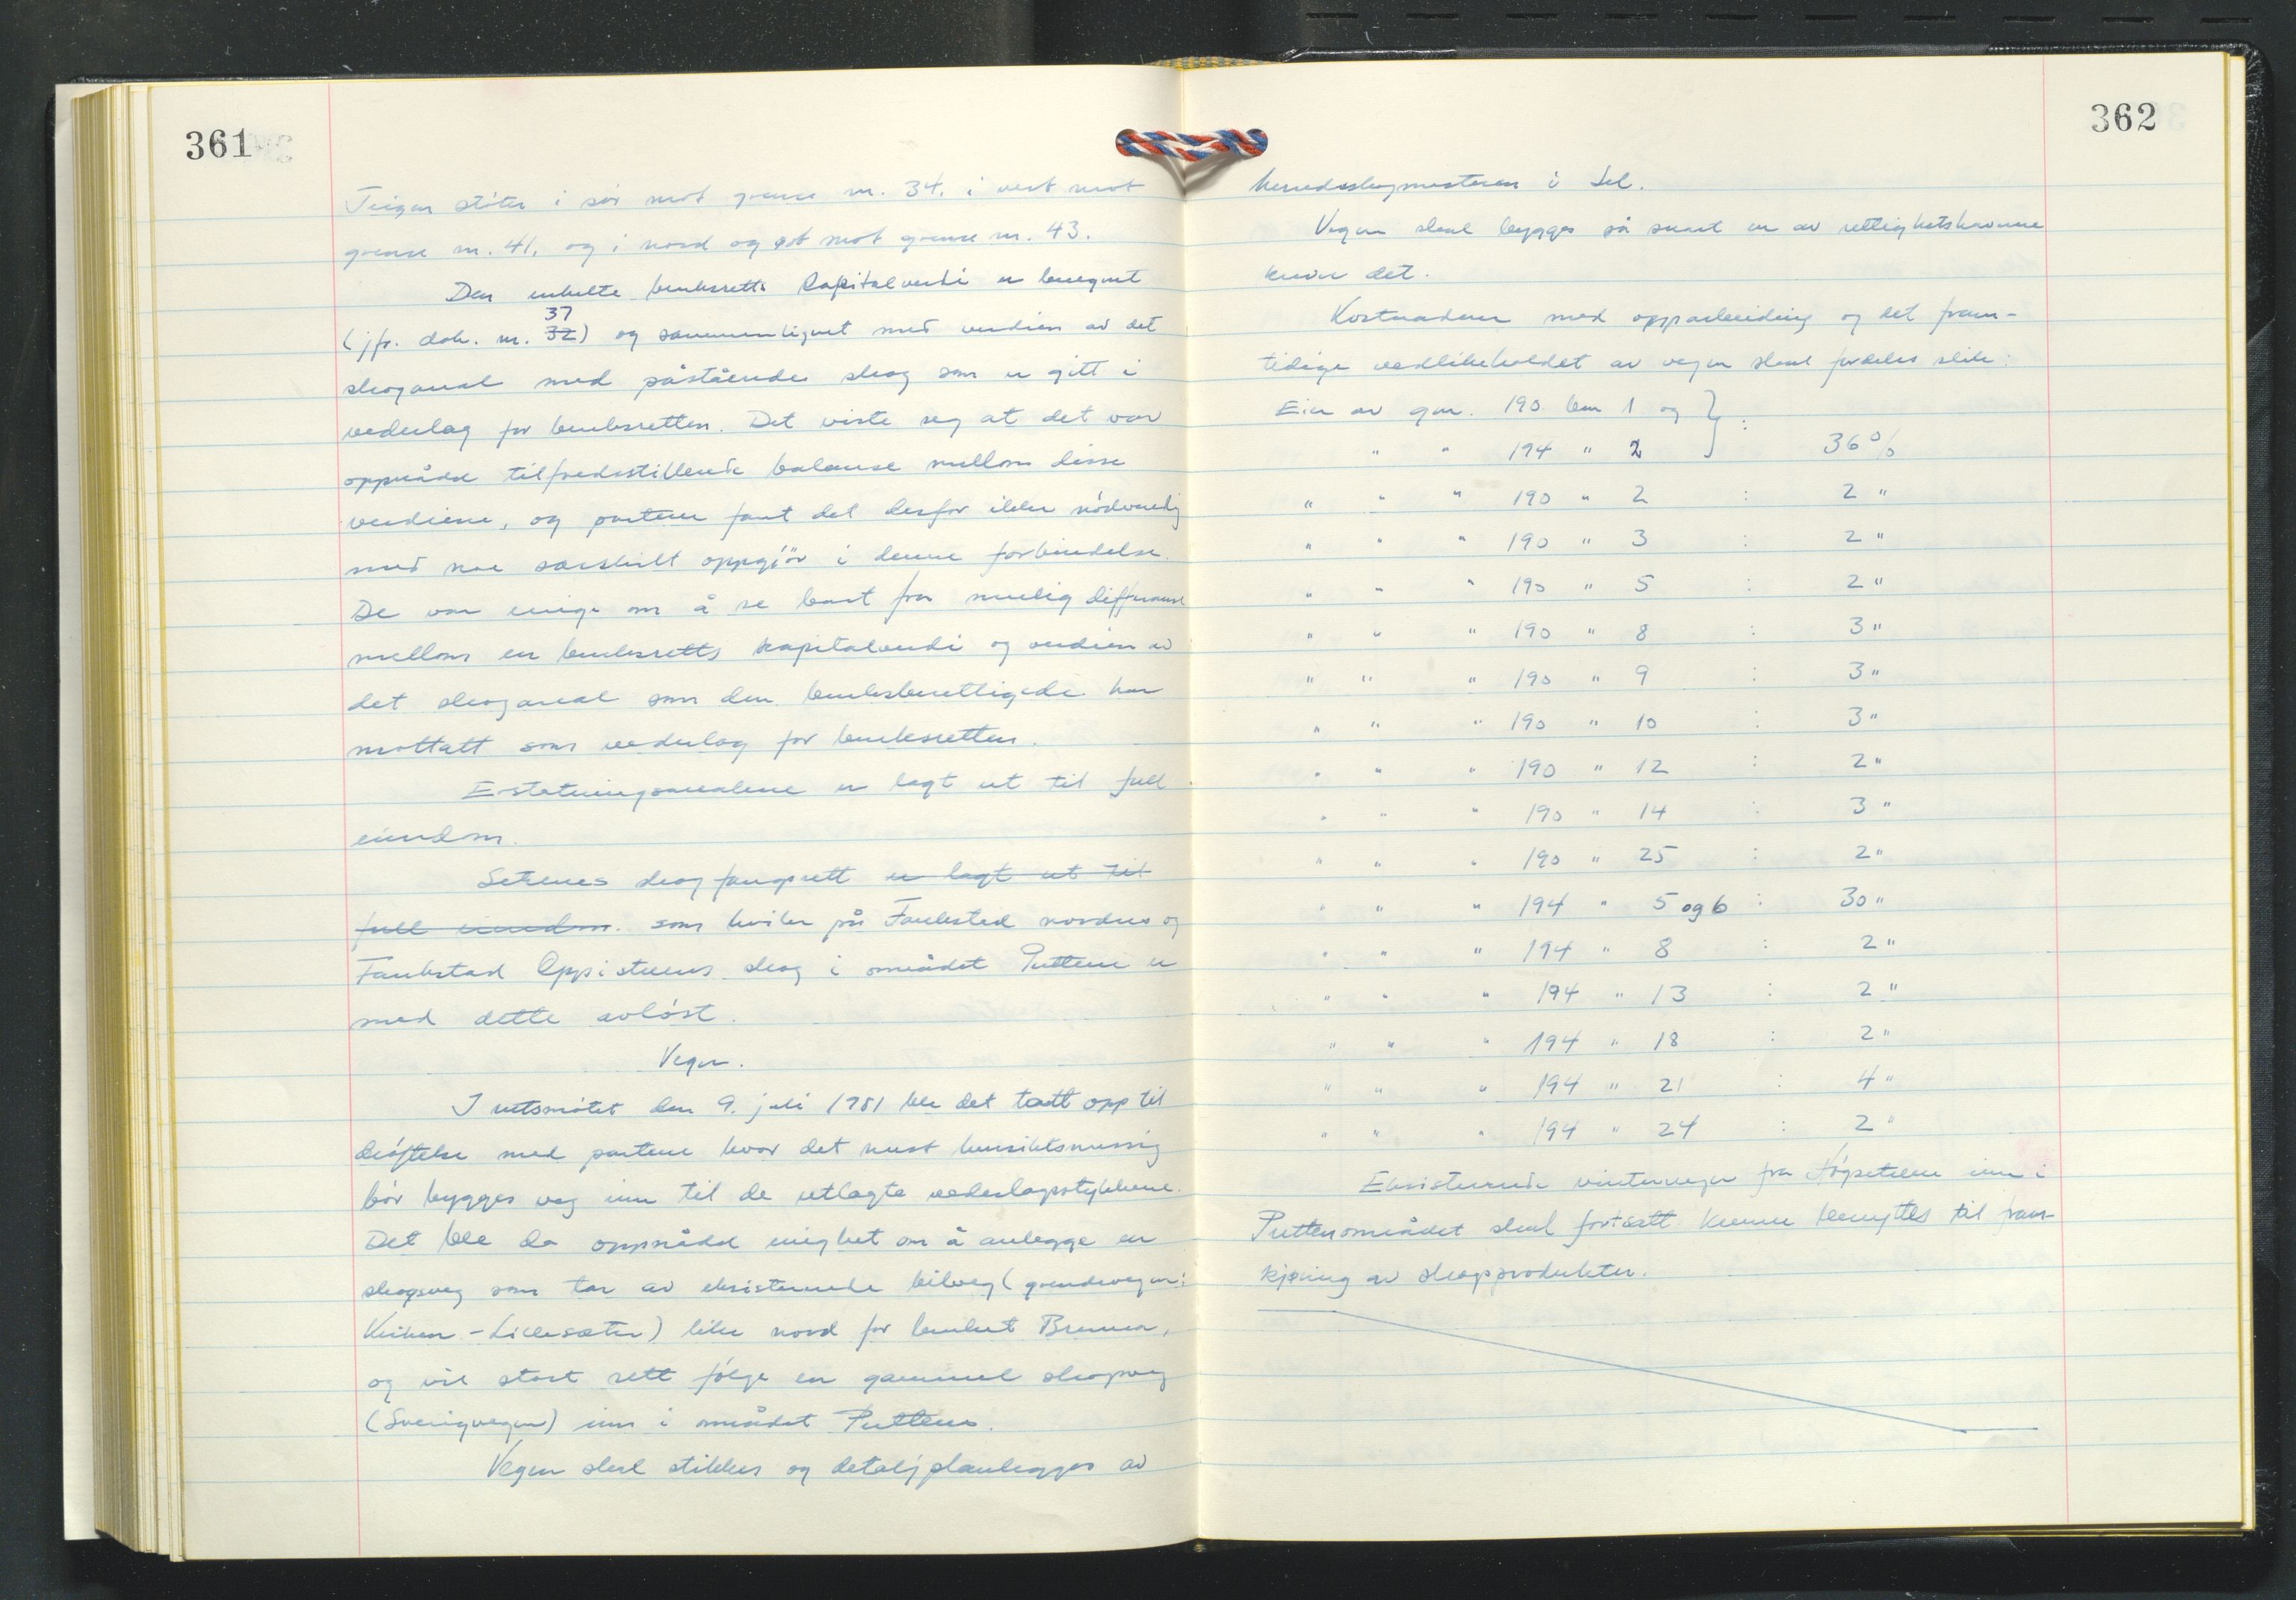 361
Teigen støter i sør mot grense nr. 34, i vest mot
grense nr. 41, og i nord og øst mot grense nr. 43.
Den enkelte bruksretts kapitalverdi er beregnet
37
(jfr. dok. nr. 32) og sammenlignet med verdien av det
skogareal med påstående skog som er gitt i
vederlag for bruksretten. Det viste seg at det var
oppnådd tilfredsstillende balanse mellom disse
verdiene, og partene fant det derfor ikke nødvendig
med noe særskilt oppgjør i denne forbindelse.
De var enige om å se bort fra mulig differanse
mellom en bruksretts kapitalverdi og verdien av
det skogareal som den bruksberettigede har
mottatt som vederlag for bruksretten.
Erstatningsarealene er lagt ut til full
eiendom.
Setrenes skogfangsrett er lagt ut til
full eiendom. som hviler på Faukstad nordre og
Faukstad Oppistuens skog i området Puttene er
med dette avløst.
Veger.
I rettsmøtet den 9. juli 1981 ble det tatt opp til
drøftelse med partene hvor det mest hensiktsmessig
bør bygges veg inn til de utlagte vederlagsstykkene.
Det ble da oppnådd enighet om å anlegge en
skogsveg som tar av eksisterende bilveg (grendevegen:
Kirken - Lillesæter) like nord for bruket Brenna,
og vil stort sett følge en gammel skogsveg
(Sverigvegen) inn i området Puttene.
Vegen skal stikkes og detaljplanlegges av
362
herredsskogmesteren i Sel.
Vegen skal bygges så snart en av rettighetshaverne
krever det.
Kostnadene med opparbeiding og det fram-
tidige vedlikeholdet av vegen skal fordeles slik:
Eier av gnr. 190 bnr 1 og } :
" " 194 " 2 36 %
" " " 190 " 2 : 2 "
" " " 190 " 3 : 2 "
" " " 190 " 5 : 2 "
" " " 190 " 8 : 3 "
" " " 190 " 9 : 3 "
" " " 190 " 10 : 3 "
" " " 190 " 12 : 2 "
" " " 190 " 14 : 3 "
" " " 190 " 25 : 2 "
" " " 194 " 5 og 6 : 30 "
" " " 194 " 8 : 2 "
" " " 194 " 13 : 2 "
" " " 194 " 18 : 2 "
" " " 194 " 21 : 4 "
" " " 194 " 24 : 2 "
Eksisterende vinterveger fra Høgsetrene inn i
Puttenområdet skal fortsatt kunne benyttes til fram-
kjøring av skogprodukter.